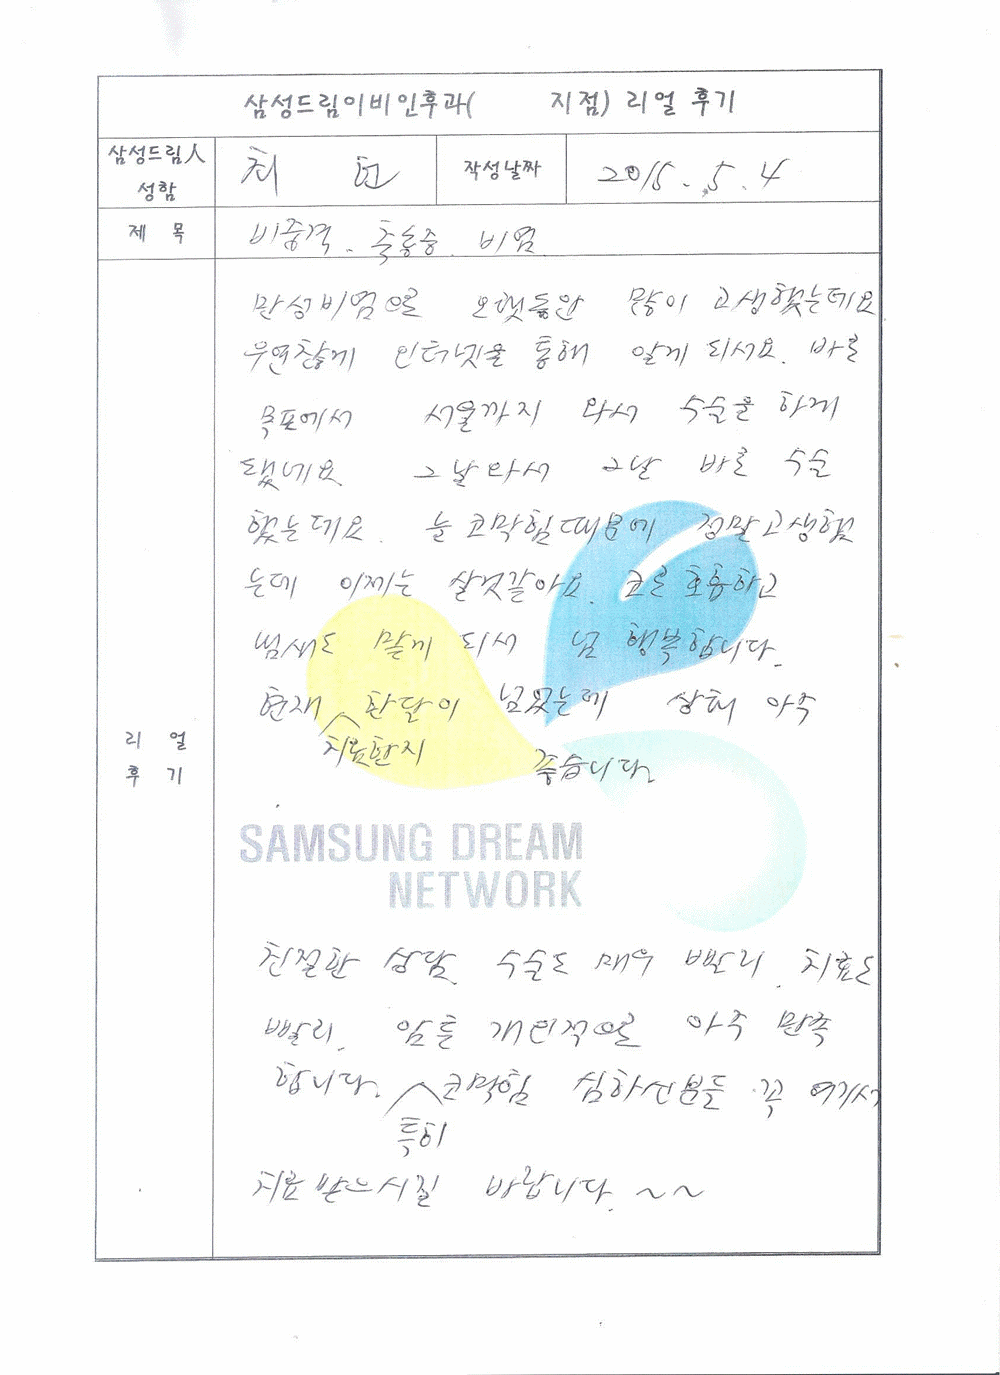 삼성드림이비인후과( 지점) 리얼 후기
삼성드림人
성함
최 현
작성날짜
2015. 5. 4
제 목
비중격. 축농증. 비염
만성비염으로 오랫동안 많이 고생했는데요
우연찮게 인터넷을 통해 알게 되서요. 바로
목포에서 서울까지 와서 수술을 하게
됐네요 그날와서 그날 바로 수술
했는데요. 늘 코막힘때문에 정말고생했
는데 이제는 살것같아요. 코로 호흡하고
냄새도 맡게 되서 넘 행복합니다.
현재 치료한지 한달이 넘었는데 상태 아주
좋습니다.
리 얼
후 기
SAMSUNG DREAM
NETWORK
친절한 상담. 수술도 매우 빨리. 치료도
빨리. 암튼 개인적으로 아주 만족
합니다. 특히 코막힘 심하신분들 꼭 여기서
치료받으시길 바랍니다. ~~